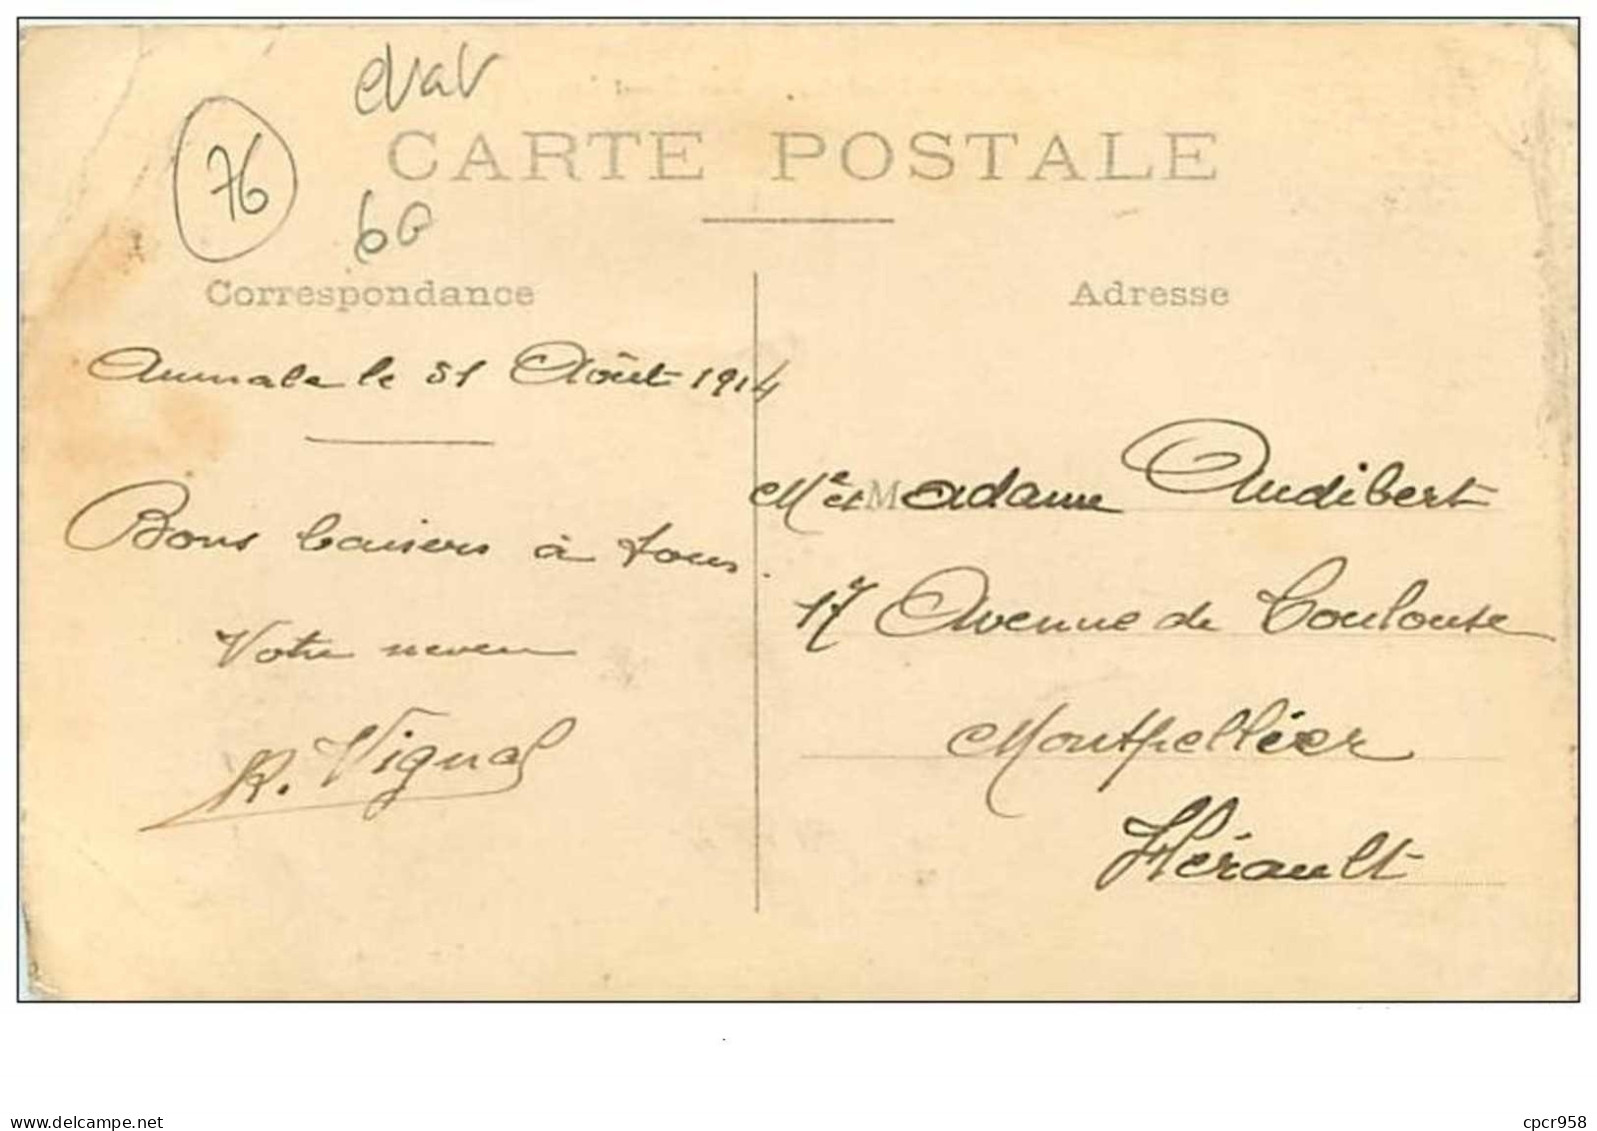 76
60
CARTE POSTALE
Correspondance
Adresse
Aumale le 31 Août 1914
Bons baisers à tous.
Votre neveu
R. Vignal
Mr et Madame Audibert
17 Avenue de Toulouse
Montpellier
Hérault
delcampe.net
cpcr958